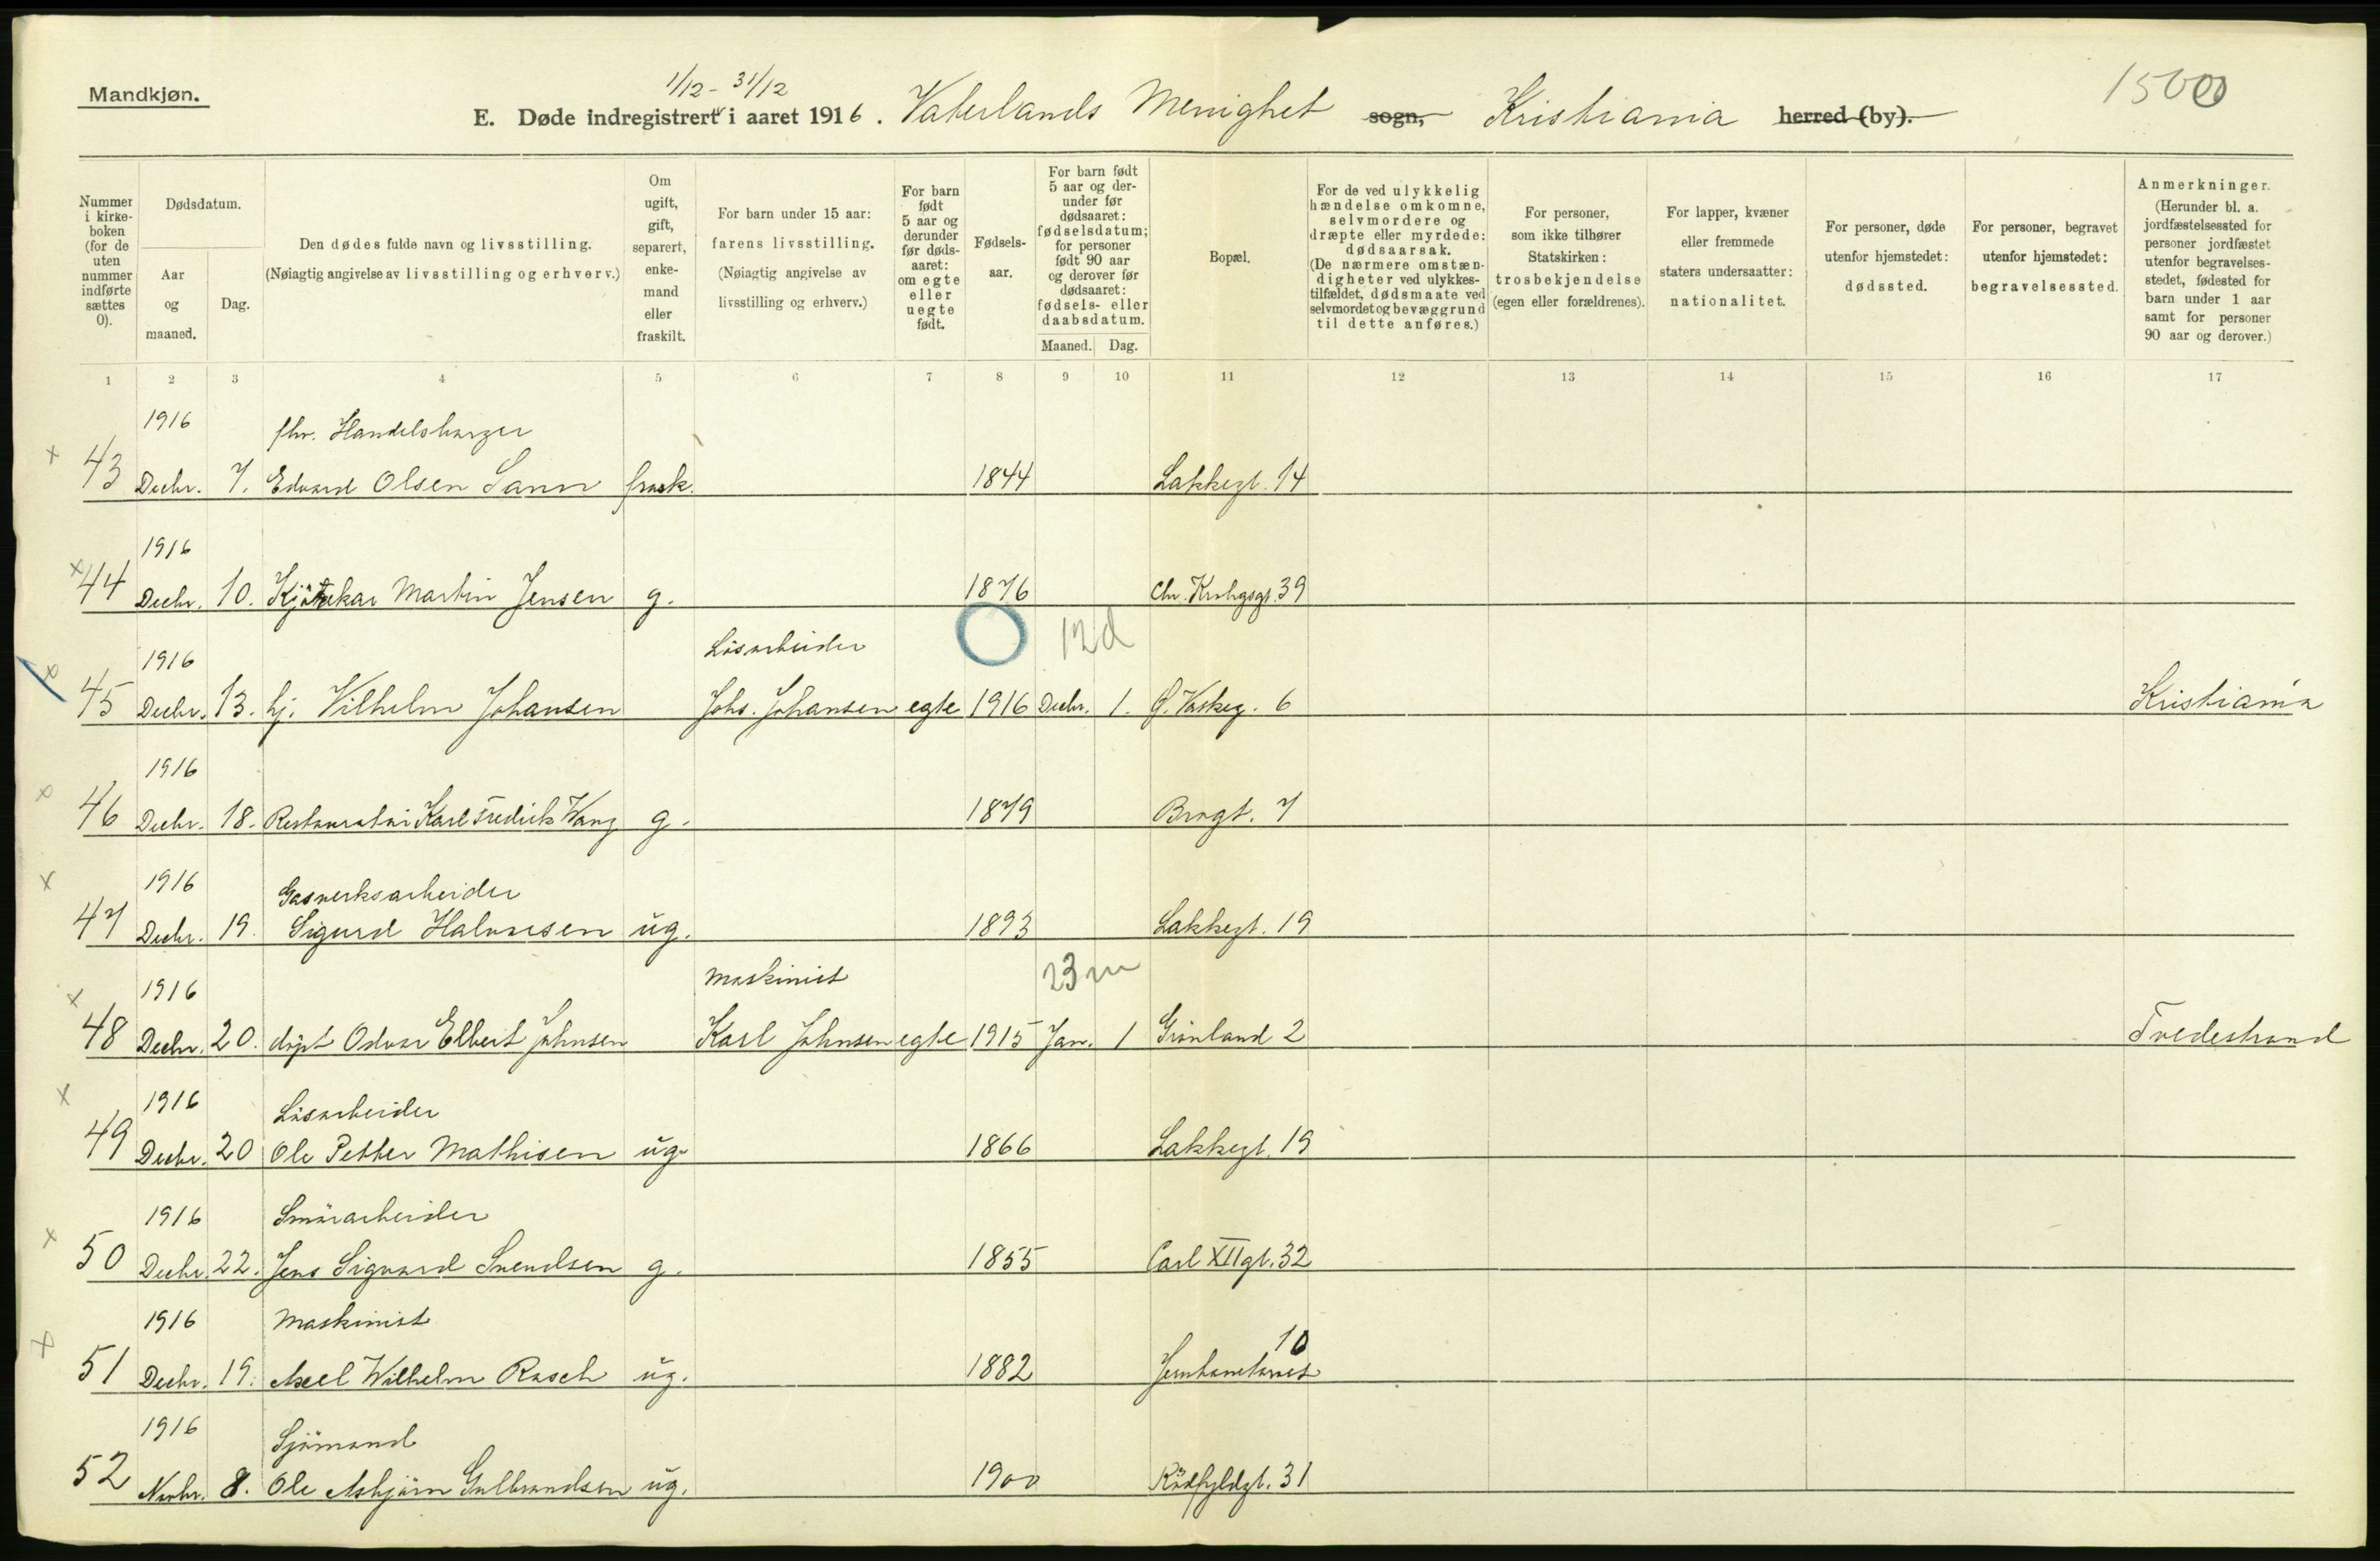 Mandkjøn.
1/12 - 31/12
1500
E. Døde indregistrert i aaret 1916. Vaterlands Menighet sogn, Kristiania herred (by).
Nummer i kirke-boken (for de uten nummer indførte sættes 0).
Dødsdatum.
Aar og maaned.
Dag.
Den dødes fulde navn og livsstilling. (Nøiagtig angivelse av livsstilling og erhverv.)
Om ugift, gift, separert, enke-mand eller fraskilt.
For barn under 15 aar: farens livsstilling. (Nøiagtig angivelse av livsstilling og erhverv.)
For barn født 5 aar og derunder før døds-aaret: om egte eller uegte født.
Fødsels-aar.
For barn født 5 aar og der-under før dødsaaret: fødselsdatum; for personer født 90 aar og derover før dødsaaret: fødsels- eller daabsdatum.
Maaned. Dag.
Bopæl.
For de ved ulykkelig hændelse omkomne, selvmordere og dræpte eller myrdede: dødsaarsak. (De nærmere omstæn-digheter ved ulykkes-tilfældet, dødsmaate ved selvmordet og bevæggrund til dette anføres.)
For personer, som ikke tilhører Statskirken: trosbekjendelse (egen eller forældrenes).
For lapper, kvæner eller fremmede staters undersaatter: nationalitet.
For personer, døde utenfor hjemstedet: dødssted.
For personer, begravet utenfor hjemstedet: begravelsessted.
Anmerkninger. (Herunder bl. a. jordfæstelsessted for personer jordfæstet utenfor begravelses-stedet, fødested for barn under 1 aar samt for personer 90 aar og derover.)
1 2 3 4 5 6 7 8 9 10 11 12 13 14 15 16 17
1916 fhv. Handelsborger
43 Decbr. 7. Edvard Olsen Sann frask. 1844 Lakkegt. 14
1916
44 Decbr. 10. Martin Jensen g. 1876 Chr. Krohgsgt. 39
1916 Lösarbeider 12 d
45 Decbr. 13. hj. Vilhelm Johansen Johs. Johansen egte 1916 Decbr. 1. 6 Kristiania
1916
46 Decbr. 18. Restauratör Karl Fredrik Wang g. 1879 Brogt. 7
1916 Gasverksarbeider
47 Decbr. 19. Sigurd Halvorsen ug. 1893 Lakkegt. 19
1916 Maskinist 23 m
48 Decbr. 20. döpt Odvar Elbert Johnsen Karl Johnsen egte 1915 Jan. 1 Grönland 2 Tvedestrand
1916 Lösarbeider
49 Decbr. 20 Ole Petter Mathisen ug. 1866 Lakkegt. 19
1916 Smörarbeider
50 Decbr. 22. Jens Sigvard Svendsen g. 1855 Carl XII gt. 32
1916 Maskinist 10
51 Decbr. 19. Axel Wilhelm Rasch ug. 1882 Jernbanetorvet
1916 Sjömand
52 Novbr. 8. Ole Asbjörn Gulbrandsen ug. 1900 Rödfyldgt. 31